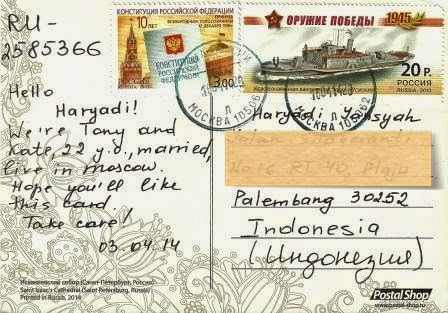 RU-
2585366
Hello
Haryadi!
We're Tony and
Kate, 22 y.o., married,
live in moscow.
Hope you'll like
this card.
Take care!
03.04.14
Исаакиевский собор (Санкт-Петербург, Россия)
Saint Isaac's Cathedral (Saint Petersburg, Russia)
Printed in Russia, 2014
КОНСТИТУЦИЯ РОССИЙСКОЙ ФЕДЕРАЦИИ
10 лет
ПРИНЯТА
ВСЕНАРОДНЫМ ГОЛОСОВАНИЕМ
12 ДЕКАБРЯ 1993
КОНСТИТУЦИЯ
РОССИЙСКОЙ
ФЕДЕРАЦИИ
РОССИЯ
300
ОРУЖИЕ ПОБЕДЫ 1945
20 р.
РОССИЯ
RUSSIA·2013
Л
МОСКВА
Л
МОСКВА
Haryadi
Palembang 30252
Indonesia
(Индонезия)
PostalShop
www.postal-shop.ru